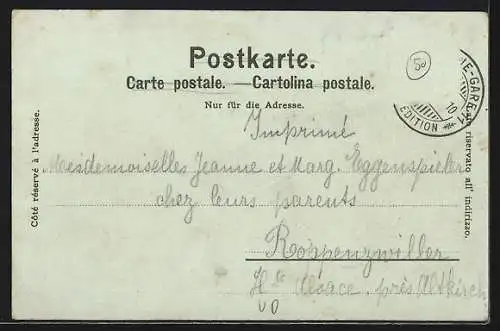 Postkarte.
Carte postale. — Cartolina postale.
Nur für die Adresse.
Côté réservé à l'adresse.
riservato all' indirizzo.
50
E-GARE
10
EDITION
Imprimé
Mesdemoiselles Jeanne et Marg. Eggenspieler
chez leurs parents
Roppenzwiller
Hte Alsace, près Altkirch